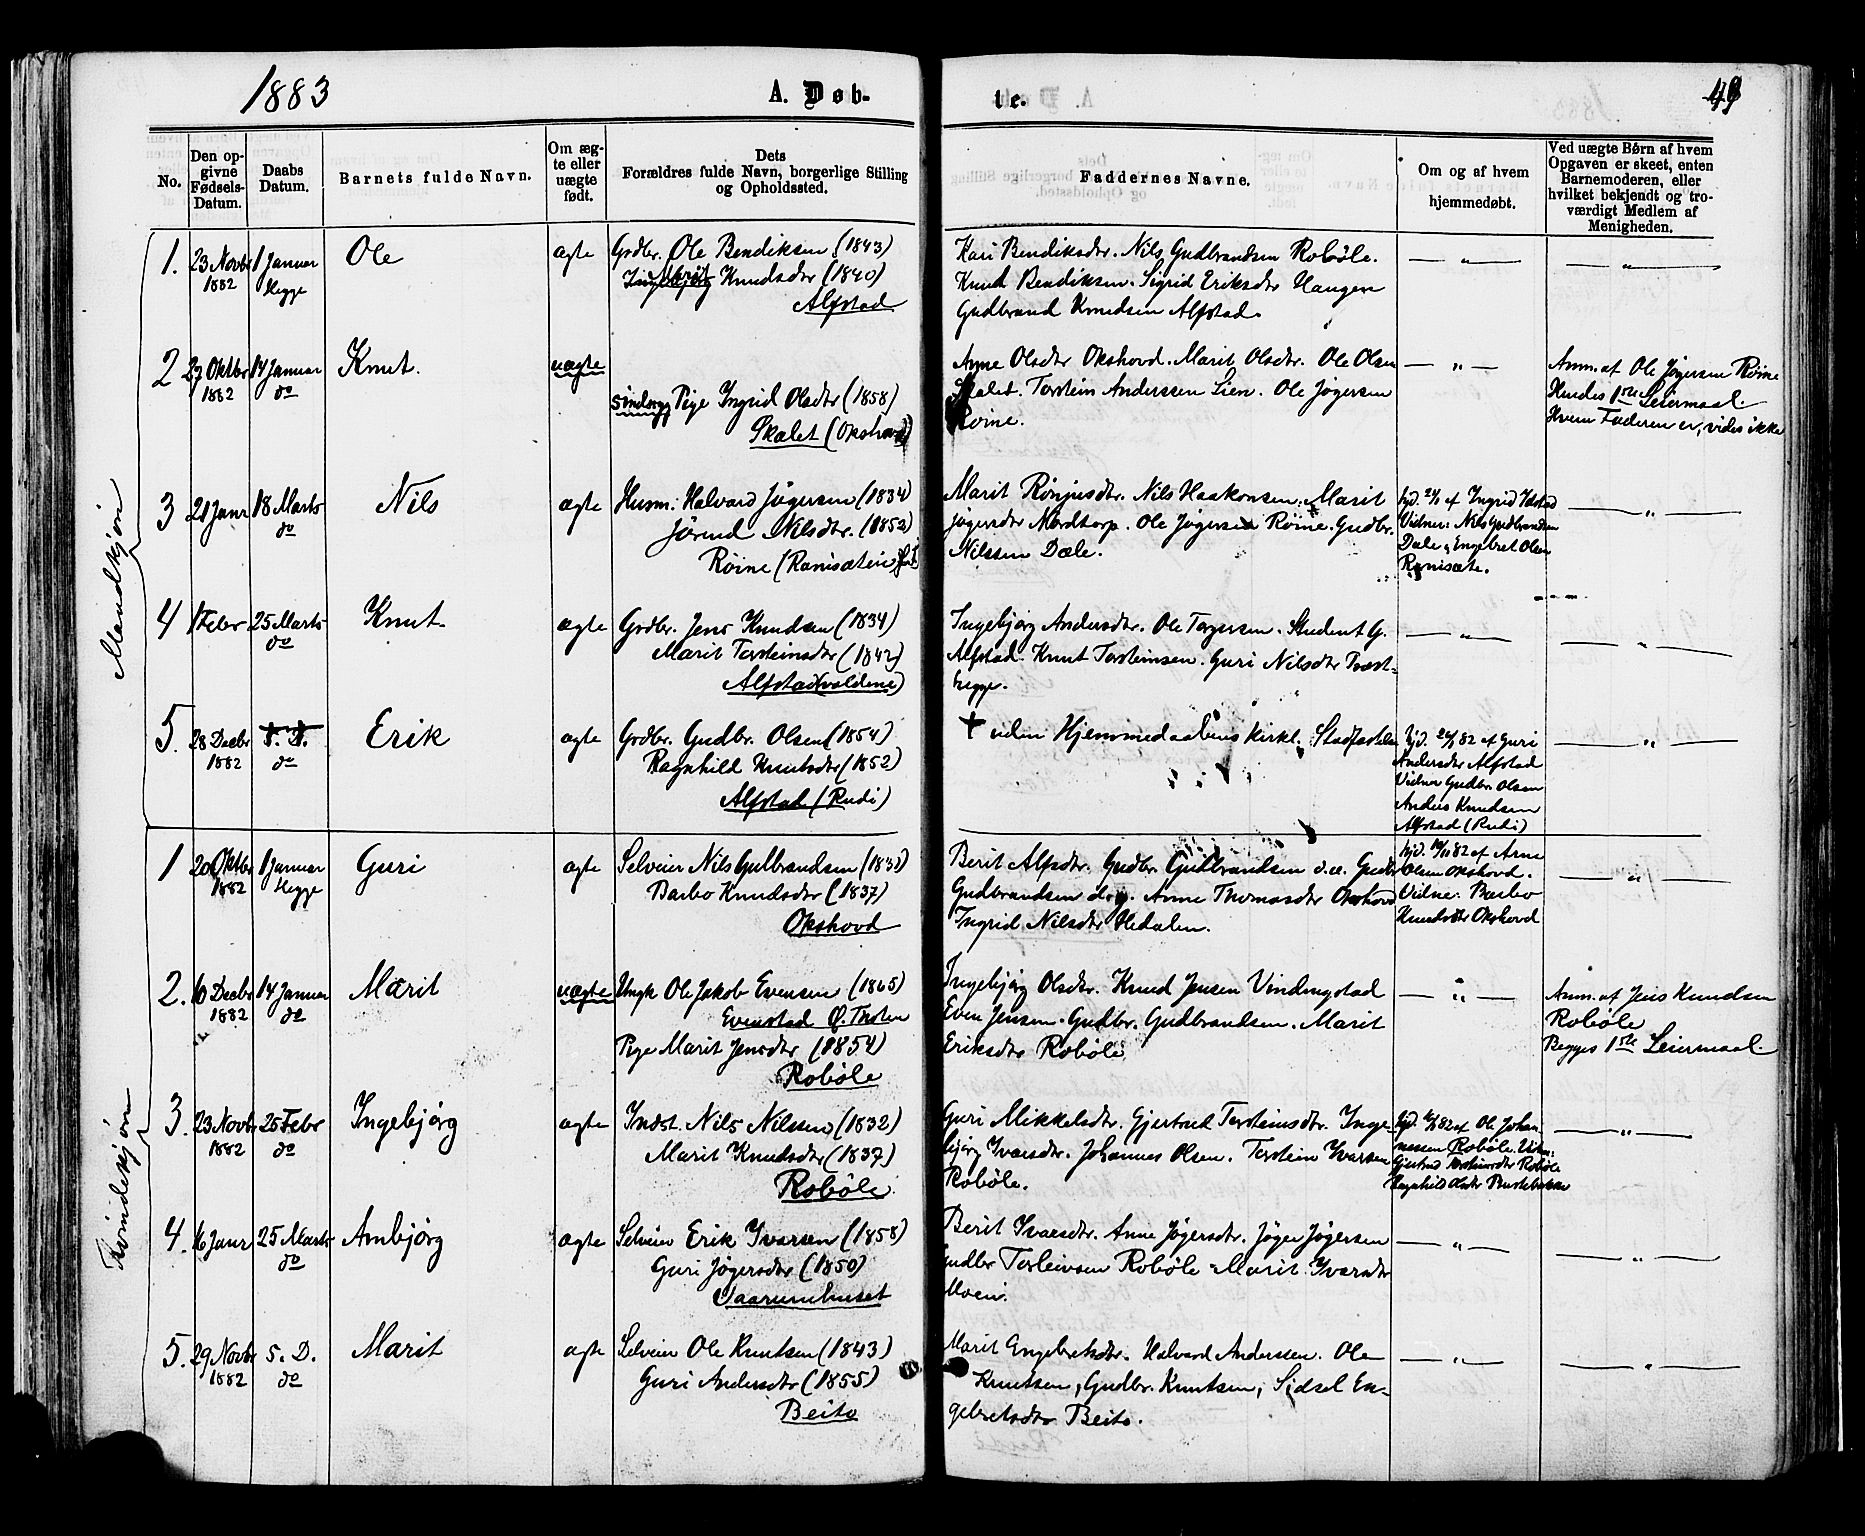 1883
A. Døb-
te.
49
No.
Den op-
givne
Fødsels-
Datum.
Daabs
Datum.
Barnets fulde Navn.
Om æg-
te eller
uægte
født.
Dets
Forældres fulde Navn, borgerlige Stilling
og Opholdssted.
Faddernes Navne.
Om og af hvem
hjemmedøbt.
Ved uægte Børn af hvem
Opgaven er skeet, enten
Barnemoderen, eller
hvilket bekjendt og tro-
værdigt Medlem af
Menigheden.
Mandkjøn
1. 23 Novbr 1 Januar Ole ægte Grdbr. Ole Bendiksen (1843)
1882 Hegge
Knudsdtr (1840)
Alfstad
Kari Bendiksdtr. Nils Gudbrandsen Robøle.
Knud Bendiksen. Sigrid Eriksdtr Haugen
Gudbrand Knudsen Alfstad.
— " —
— " —
2 27 Oktbr 14 Januar Knut. uægte
1882 do
Pige Ingrid Olsdtr (1858)
Skalet (Okshovd)
Anne Olsdtr Okshovd. Marit Olsdtr. Ole Olsen
Skalet. Torstein Anderssen Lien. Ole Jøgersen
Røine.
— " —
Anm. af Ole Jøgersen Røine
Hendes 1ste Leiermaal.
Hvem Faderen er, vides ikke
3 21 Janr 18 Marts Nils ægte Husm. Halvard Jøgersen (1834)
do
Jørund Nilsdtr. (1852)
Røine
Marit Rønjusdtr. Nils Haakonsen. Marit
Jøgersdtr Nordtorp. Ole Jøgersen Røine. Gudbr.
Nilssen Dale.
hjd. af Ingrid Ildstad
Vidner: Nils Gudbrandsen
Dale, Engebret Olsen
Ranisæte.
— " —
4 1 Febr 25 Marts Knut ægte Grdbr. Jens Knudsen (1834)
do
Marit Torsteinsdtr (1842)
Alfstad(valdene)
Ingebjørg Andersdtr. Ole Torgersen. Student G.
Alfstad. Knut Torsteinsen. Guri Nilsdtr Tvæt-
hegge.
— " —
— " —
5. 28 Decbr Erik ægte Grdbr. Gudbr. Olsen (1854)
1882 do
Ragnhild Knutsdtr (1852)
Alfstad (Rudi)
+ uden Hjemmedaabens kirkl. Stadfæstelse
hjd. af Guri
Andersdtr Alfstad
Vidner Gudbr. Olsen
Anders Knudsen
Alfstad (Rudi)
— " —
Kvindekjøn
1 20 Oktbr 1 Januar Guri ægte Selveier Nils Gulbrandsen (1832)
1882 Hegge
Barbo Knudsdtr (1837)
Okshovd
Berit Alfsdtr. Gudbr. Gudbrandsen d.æ. Gudbr.
Gudbrandsen d.y. Anne Thomasdtr Okshovd
Ingrid Nilsdtr Hedalen.
hjd. af Arne
Olsen Okshovd.
Vidne: Barbo
Knudsdtr Okshovd
— " —
2. 10 Decbr 14 Januar Marit uægte Ungk Ole Jakob Evensen (1865)
1882 do
Evenstad Ø. Thoten
Pige Marit Jensdtr (1854)
Robøle
Ingebjørg Olsdtr. Knud Jensen Vindingstad
Even Jensen. Gudbr. Gudbrandsen. Marit
Eriksdtr Robøle
— " —
Anm. af Jens Knudsen
Robøle
Begges 1ste Leiermaal.
3. 23 Novbr 25 Febr Ingebjørg ægte Indst. Nils Nilssen (1832)
1882 do
Marit Knudsdtr (1837)
Robøle
Guri Mikkelsdtr. Gjertrud Torsteinsdtr. Inge-
bjørg Ivarsdtr. Johannes Olsen. Torstein Ivarsen
Robøle.
hjd. af Ole Johan-
nessen Robøle. Vidn:
Gjertrud Torsteinsdtr Robøle
— " —
4. 16 Janr 25 Marts Anbjørg ægte Selveier Erik Ivarsen (1858)
do
Guri Jøgersdtr (1850)
Berit Ivarsdtr. Anne Jøgersdtr. Jøger Jøgersen
Gudbr Torleivsen Robøle. Marit Ivarsdtr
Moen.
— " —
— " —
5. 29 Novbr S. D. Marit ægte Selveier Ole Knutsen (1843)
1882 do
Guri Andersdtr (1855)
Beito
Marit Engebretsdtr. Halvard Anderssen. Ole
Knutsen, Gudbr. Knutsen, Sidsel En-
gebretsdtr Beito.
— " —
— " —